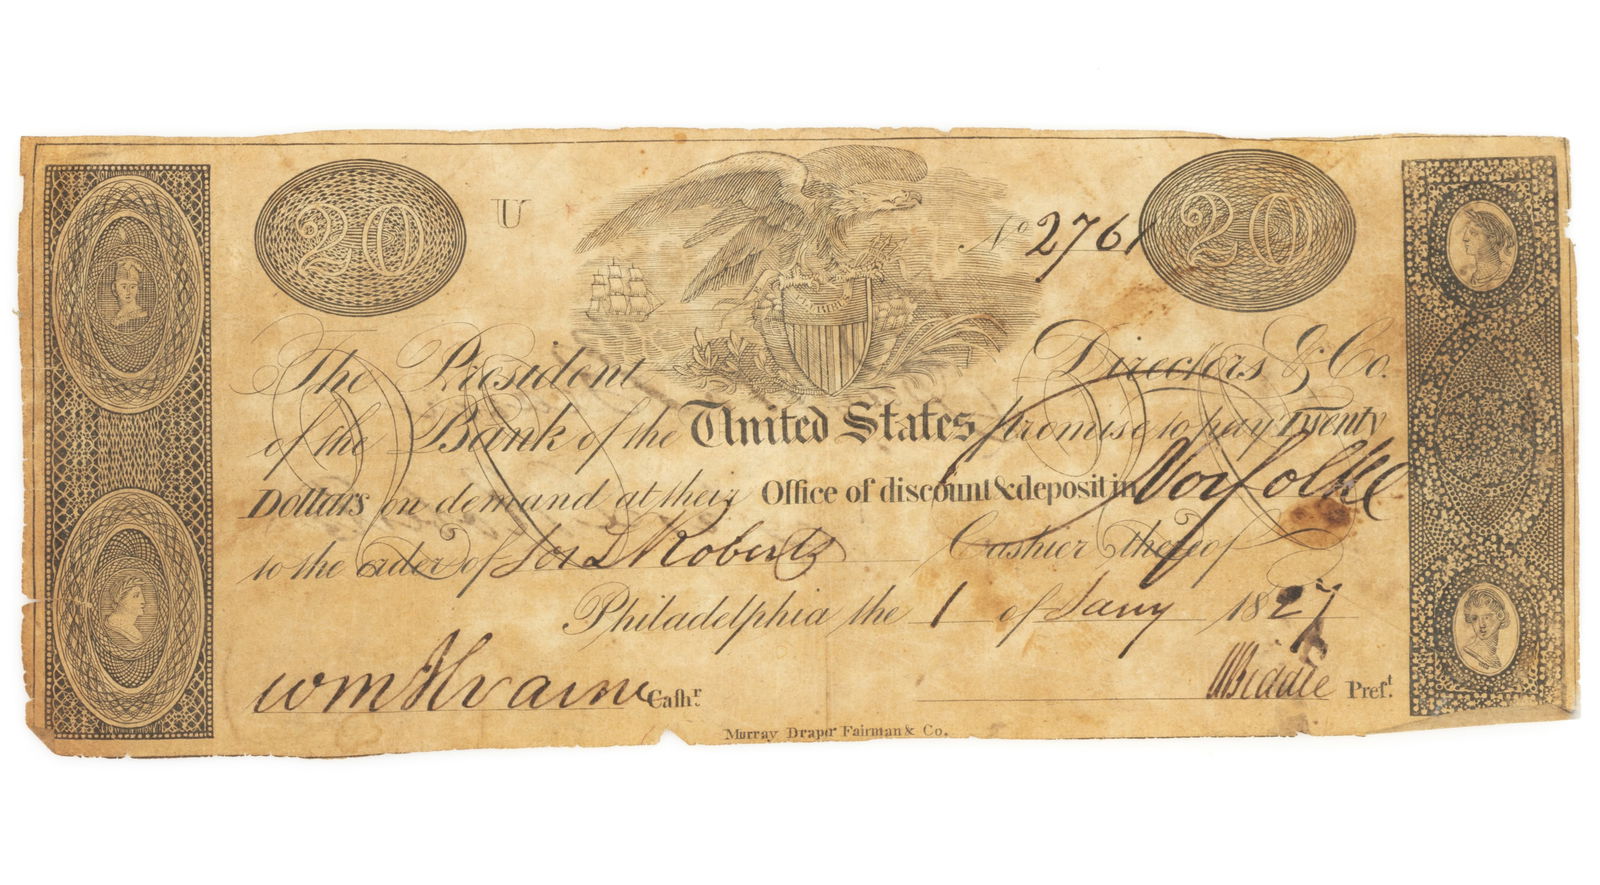 20 U Nº 2761 20
PLURIBUS
The President Directors & Co.
of the Bank of the United States promise to pay Twenty
Dollars on demand at their Office of discount & deposit in Norfolk
to the order of Jos L Roberts Cashier thereof
Philadelphia the 1 of Jany 1827
Wm McIlvaine Cashr. N Biddle Prest.
Murray Draper Fairman & Co.